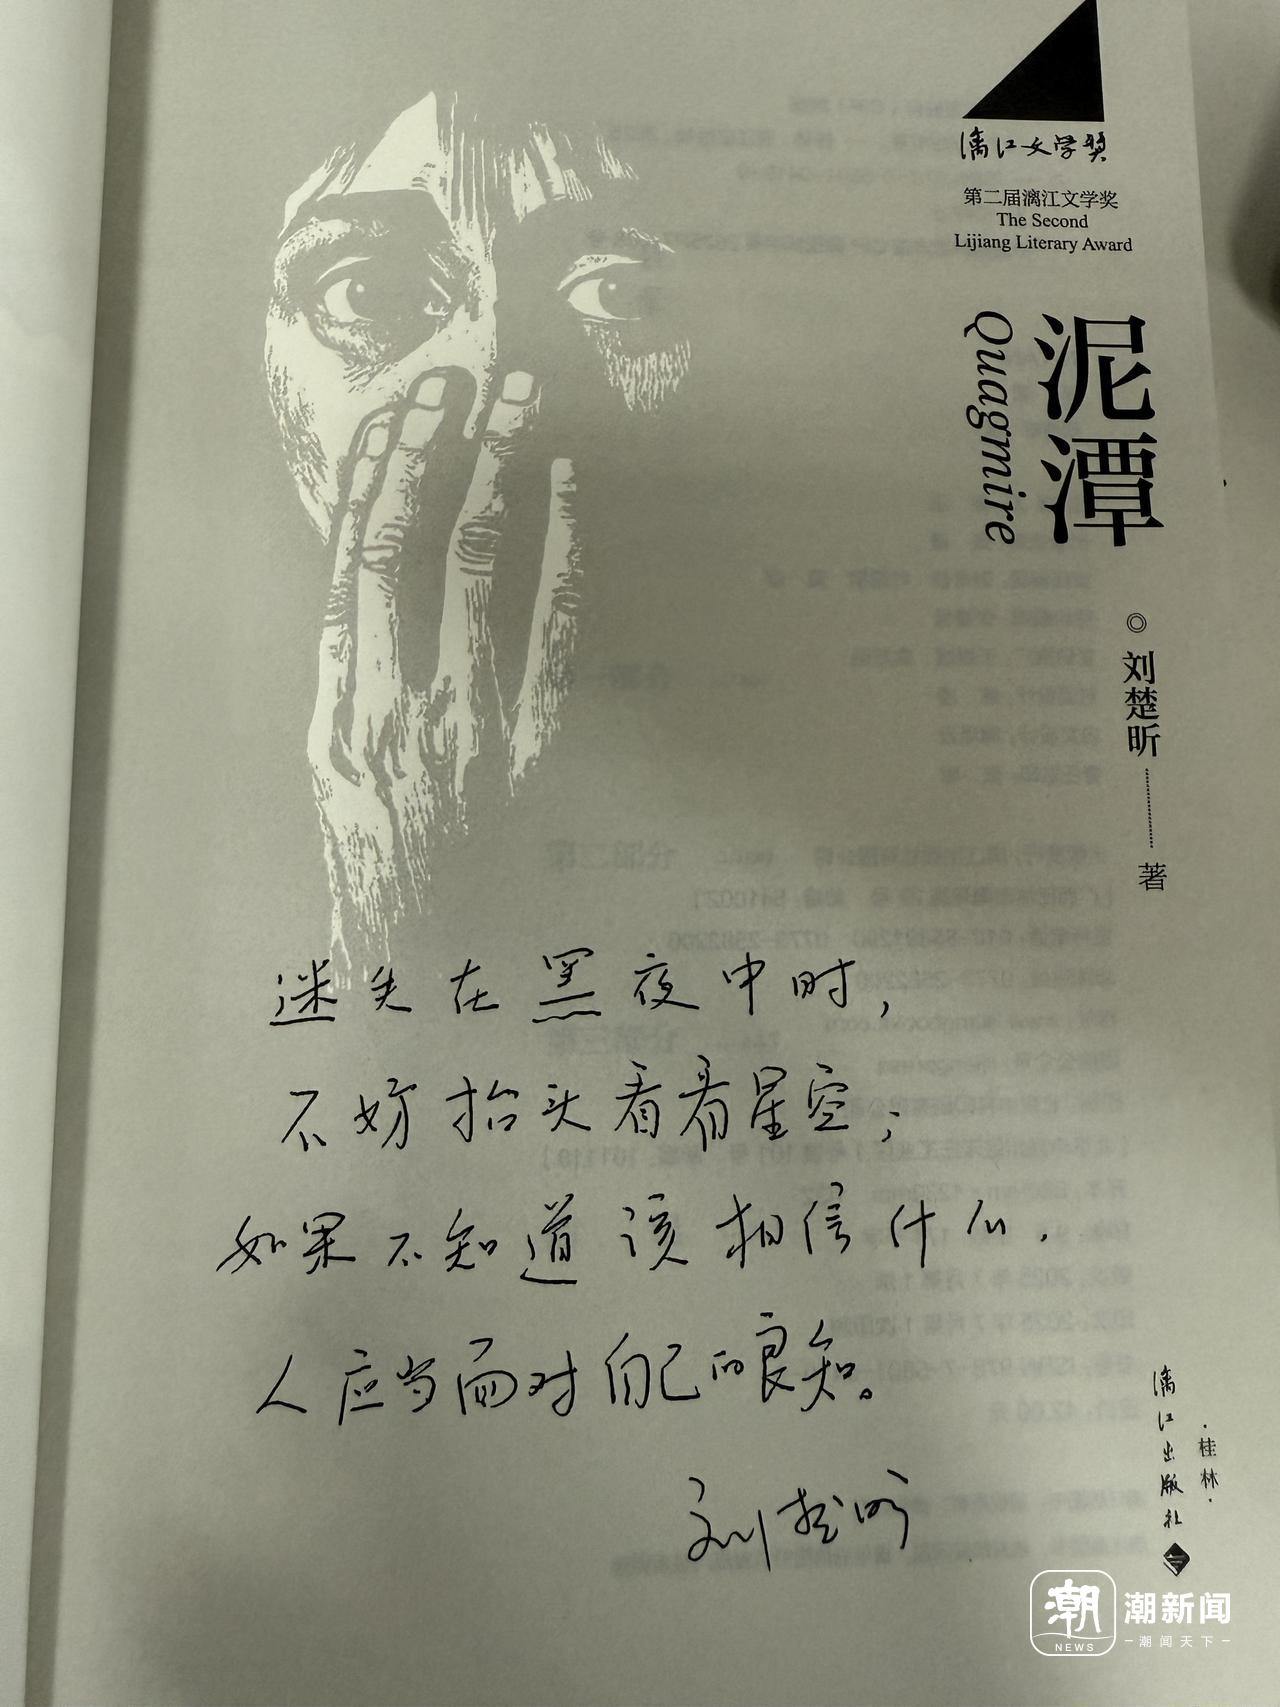 漓江文学奖
第二届漓江文学奖
The Second
Lijiang Literary Award
泥潭
Quagmire
◎刘楚昕 著
迷失在黑夜中时，
不妨抬头看看星空；
如果不知道该相信什么，
人应当面对自己的良知。
刘楚昕
漓江出版社
·桂林·
潮
NEWS
潮新闻
潮闻天下